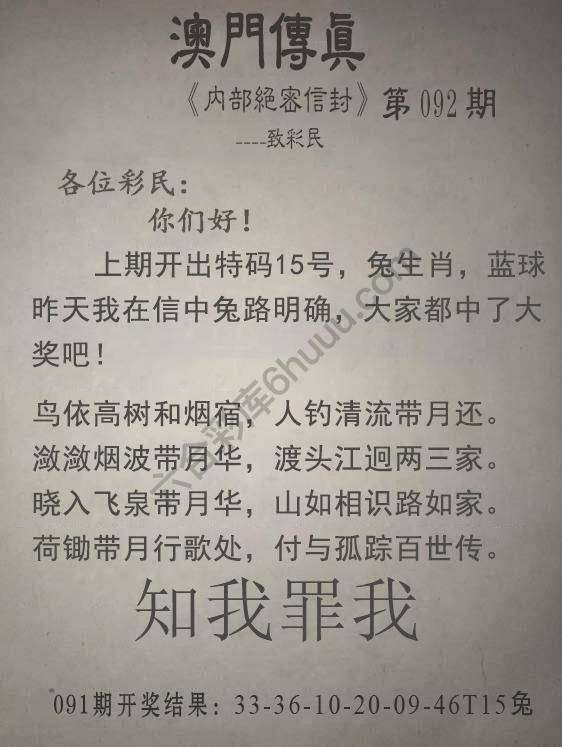 澳門傳眞
《内部絕密信封》第092期
----致彩民
各位彩民：
你们好！
上期开出特码15号，兔生肖，蓝球
昨天我在信中兔路明确，大家都中了大
奖吧！
鸟依高树和烟宿，人钓清流带月还。
潋潋烟波带月华，渡头江迥两三家。
晓入飞泉带月华，山如相识路如家。
荷锄带月行歌处，付与孤踪百世传。
知我罪我
091期开奖结果：33-36-10-20-09-46T15兔
六合彩库6huuu.com